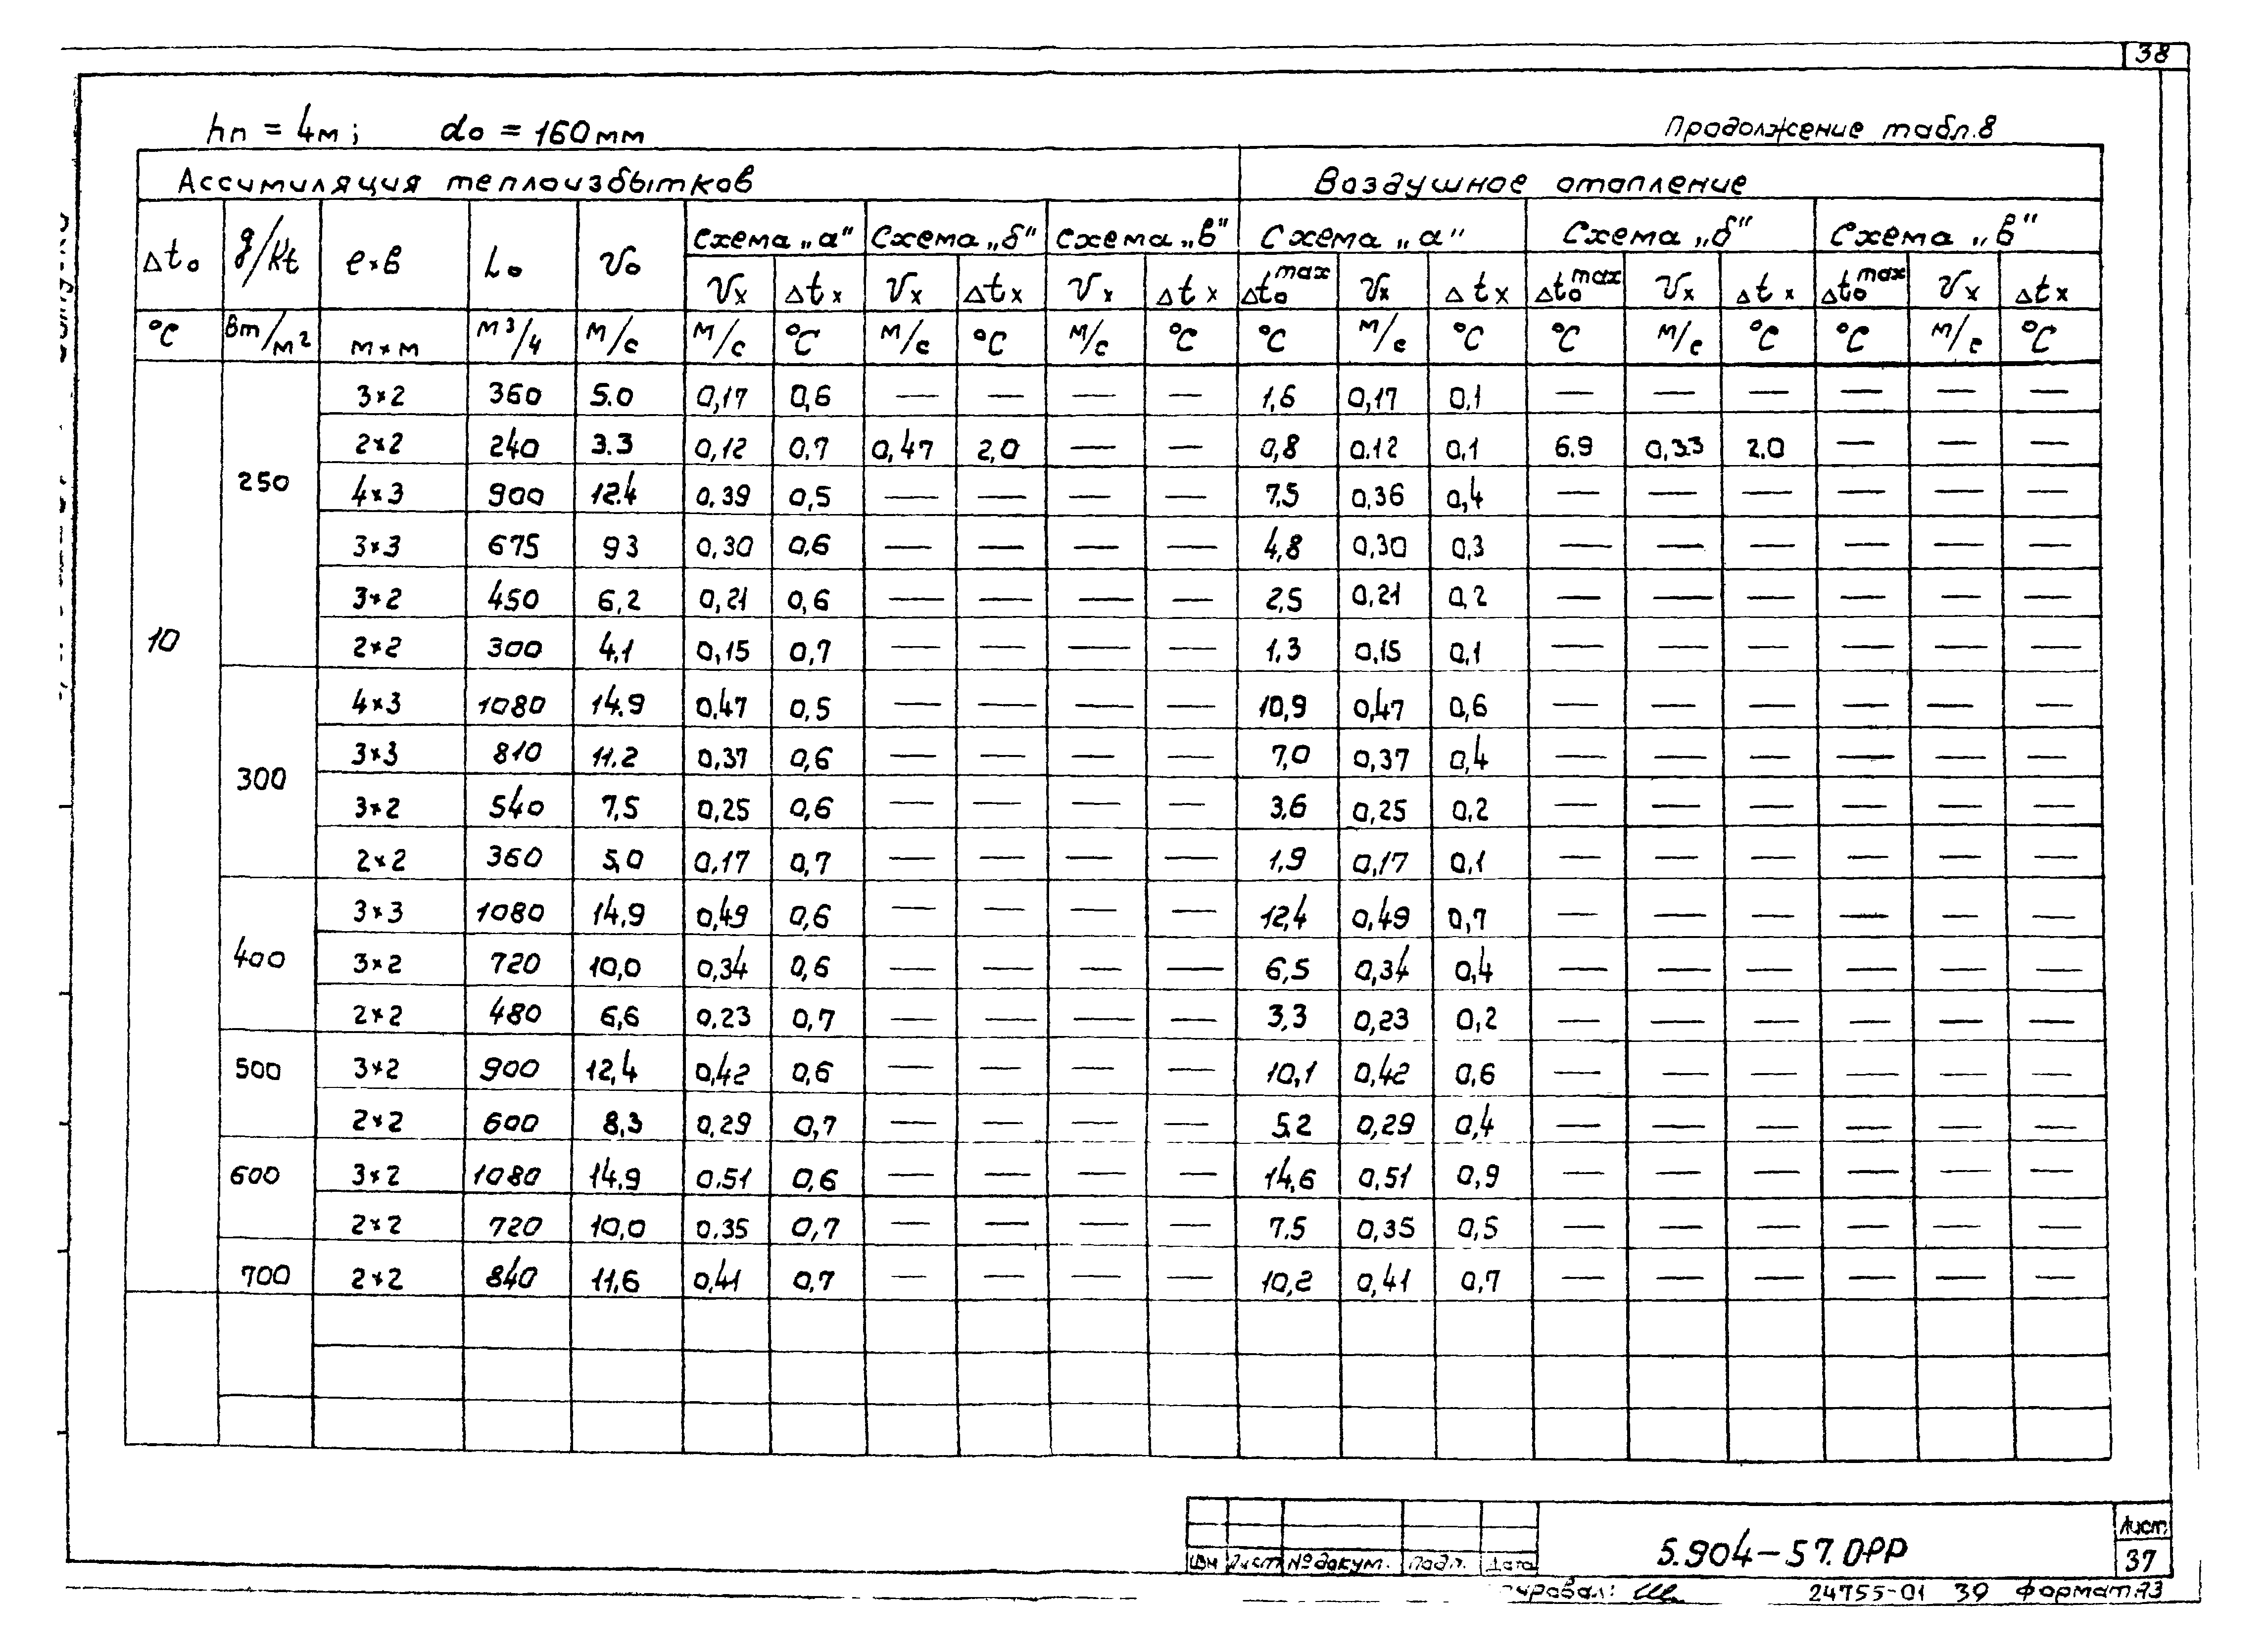 38
hп = 4м; do = 160мм
Продолжение табл.8
Ассимиляция теплоизбытков Воздушное отопление
Δto g/Kt e×в Lo Vo Схема „а" Схема „б" Схема „в" Схема „а" Схема „б" Схема „в"
Vx Δtx Vx Δtx Vx Δtx Δto max Vx Δtx Δto max Vx Δtx Δto max Vx Δtx
°C Вт/м² м×м м³/ч м/с м/с °C м/с °C м/с °C °C м/с °C °C м/с °C °C м/с °C
10
250 3×2 360 5.0 0,17 0,6 — — — — 1,6 0,17 0.1 — — — — — —
2×2 240 3.3 0,12 0.7 0,47 2,0 — — 0,8 0.12 0,1 6.9 0,33 2.0 — — —
4×3 900 12.4 0,39 0,5 — — — — 7,5 0,36 0,4 — — — — — —
3×3 675 93 0,30 0,6 — — — — 4,8 0,30 0,3 — — — — — —
3×2 450 6,2 0,21 0,6 — — — — 2,5 0,21 0,2 — — — — — —
2×2 300 4,1 0,15 0,7 — — — — 1,3 0,15 0,1 — — — — — —
300 4×3 1080 14.9 0.47 0,5 — — — — 10,9 0,47 0,6 — — — — — —
3×3 810 11.2 0,37 0,6 — — — — 7,0 0,37 0,4 — — — — — —
3×2 540 7,5 0,25 0,6 — — — — 3,6 0,25 0,2 — — — — — —
2×2 360 5,0 0,17 0,7 — — — — 1,9 0,17 0,1 — — — — — —
400 3×3 1080 14,9 0,49 0,6 — — — — 12,4 0,49 0,7 — — — — — —
3×2 720 10,0 0,34 0,6 — — — — 6,5 0,34 0,4 — — — — — —
2×2 480 6,6 0.23 0,7 — — — — 3,3 0,23 0,2 — — — — — —
500 3×2 900 12,4 0,42 0,6 — — — — 10,1 0,42 0,6 — — — — — —
2×2 600 8,3 0,29 0,7 — — — — 5.2 0,29 0,4 — — — — — —
600 3×2 1080 14.9 0.51 0,6 — — — — 14,6 0,51 0,9 — — — — — —
2×2 720 10,0 0.35 0,7 — — — — 7.5 0,35 0,5 — — — — — —
700 2×2 840 11,6 0,41 0,7 — — — — 10,2 0,41 0,7 — — — — — —
5.904-57.0РР
Лист
37
Изм Лист №докум. Подп. Дата
24755-01 39 Формат А3